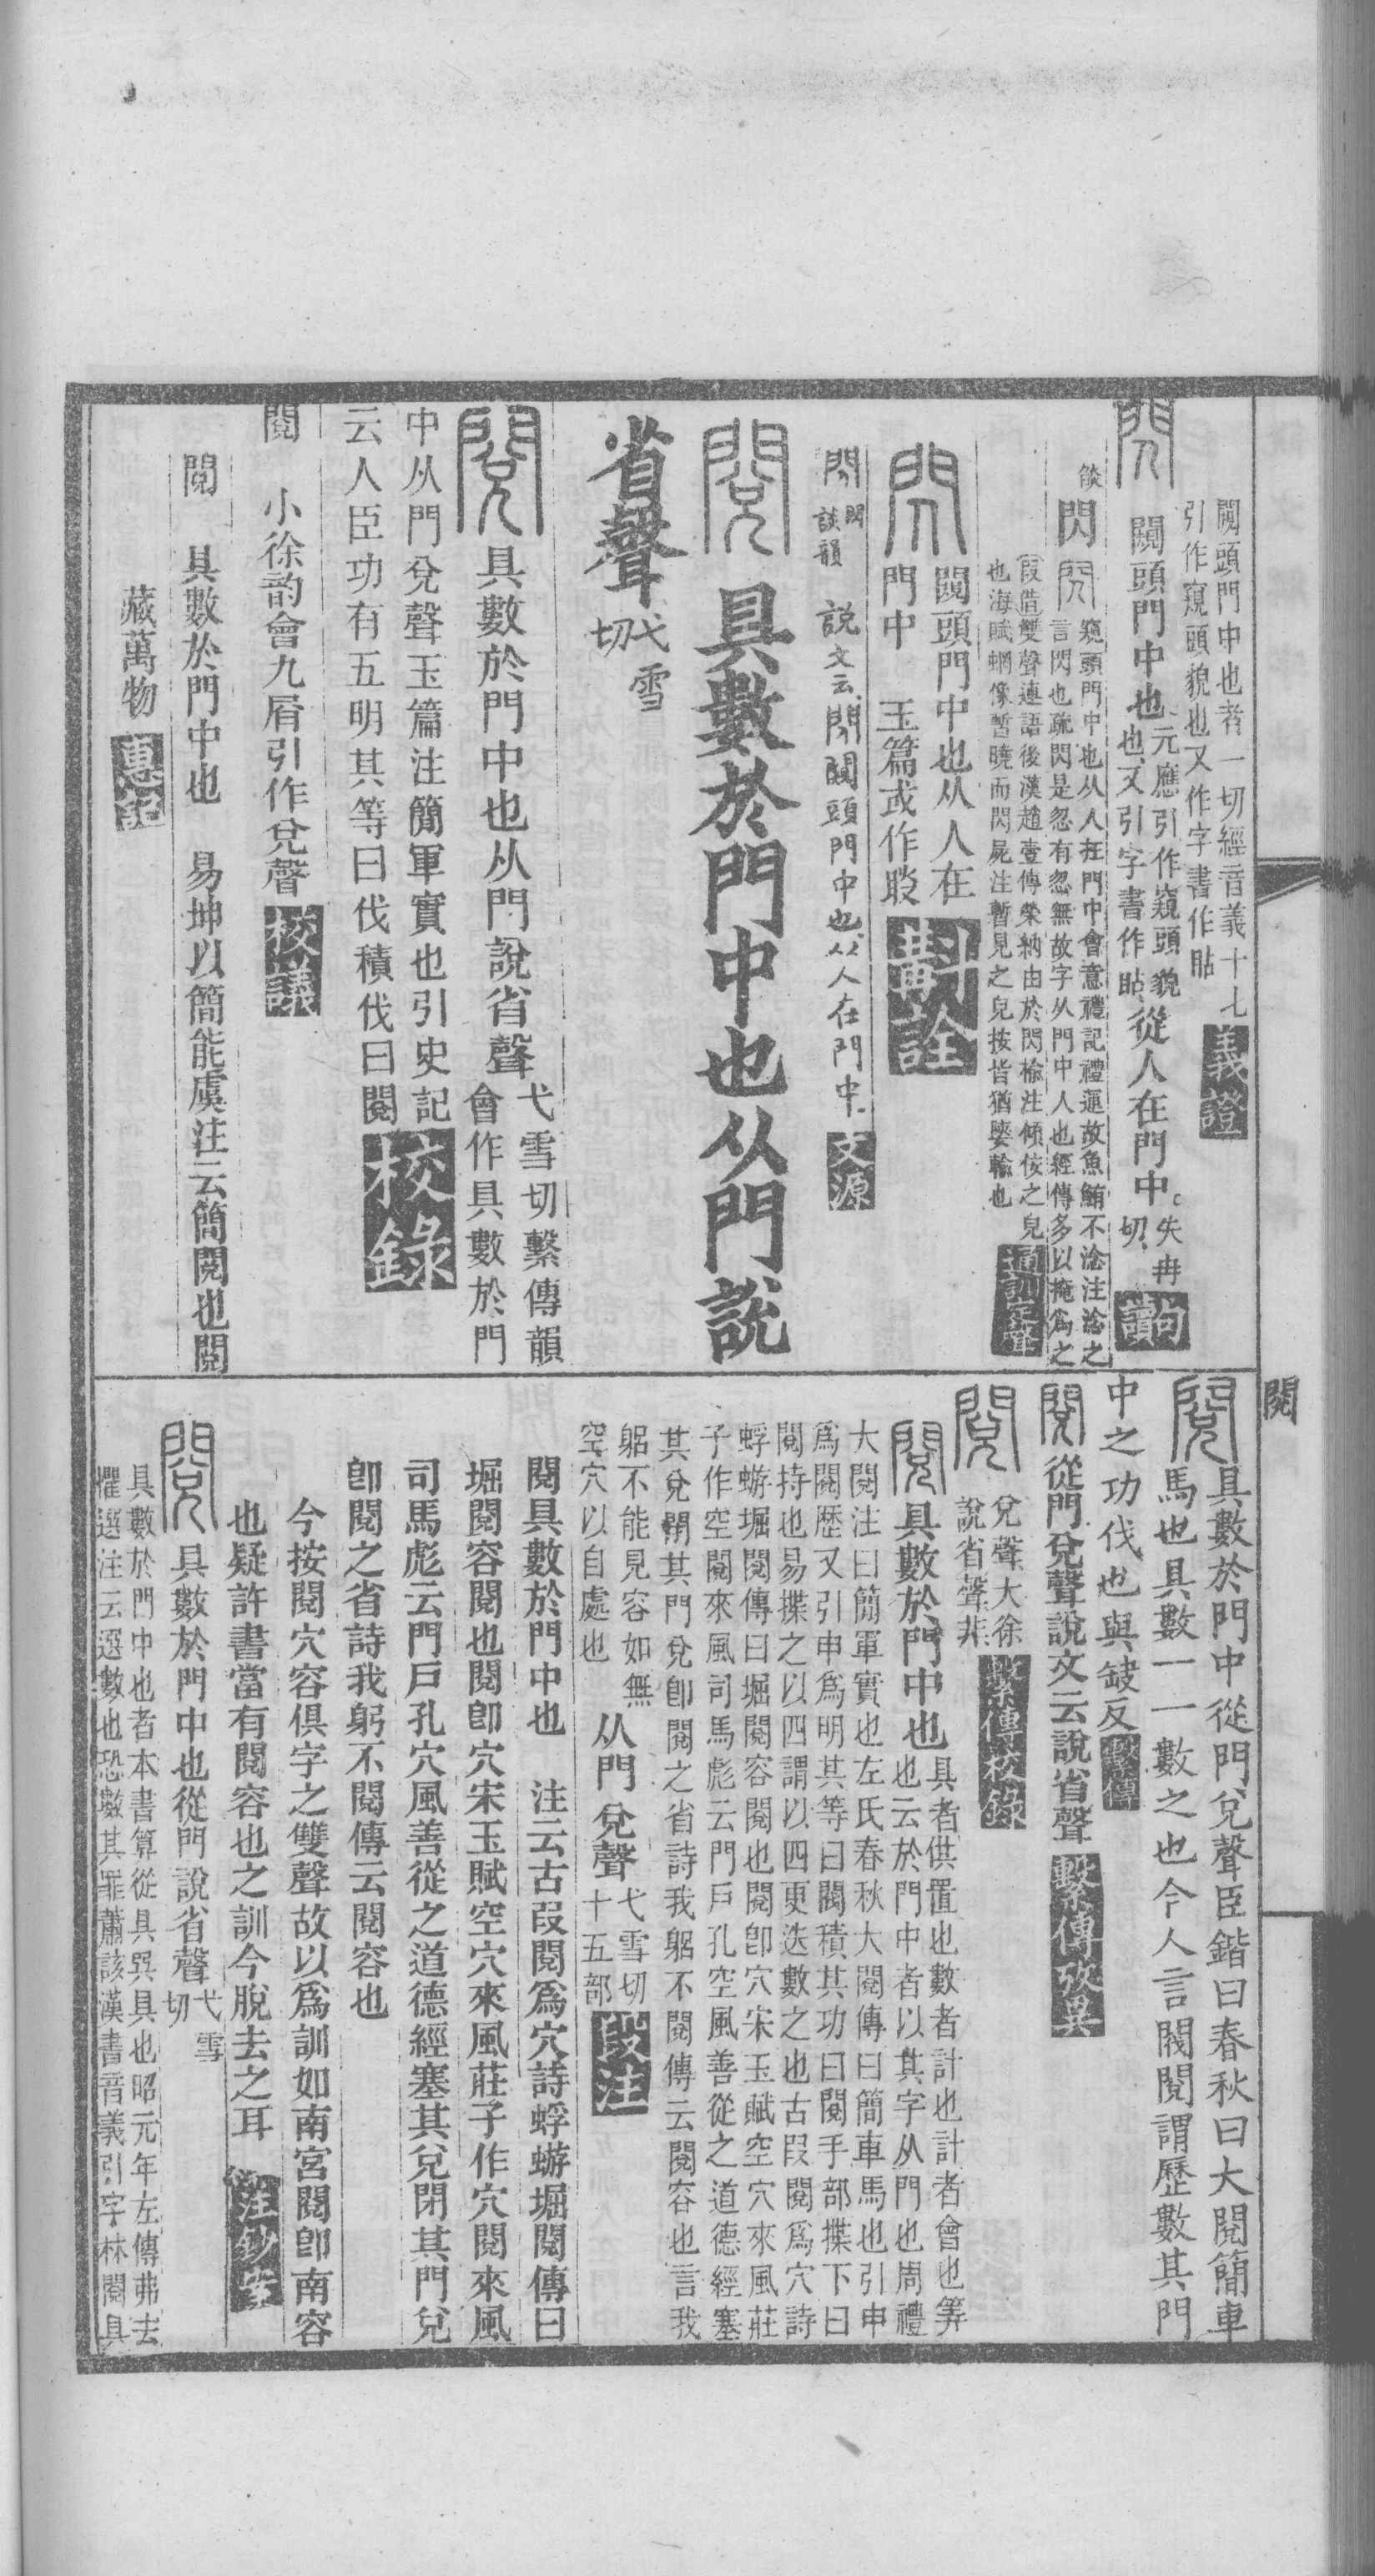 闚頭門中也者一切經音義十七
引作窺頭貌也又作字書作貼
義證
閃
闚頭門中也
元應引作窺頭貌
也又引字書作貼
從人在門中
失冉
切
句讀
燄
閃
窺頭門中也从人在門中會意禮記禮運故魚鮪不淰注淰之
言閃也疏閃是忽有忽無故字从門中人也經傳多以掩爲之
叚借雙聲連語後漢趙壹傳榮納由於閃楡注傾佞之皃
也海賦蝄像暫曉而閃屍注暫見之皃按皆猶嫛輸也
通訓定聲
閃
闚頭門中也从人在
門中　玉篇或作䀹
斠詮
閃
閃
談韻
說文云閃闚頭門中也从人在門中
文源
閱
具數於門中也从門說
省聲
弋雪
切
閱
具數於門中也从門說省聲
弋雪切繫傳韻
會作具數於門
中从門兌聲玉篇注簡軍實也引史記
云人臣功有五明其等曰伐積伐曰閱
校錄
閱　小徐韵會九屑引作兌聲
校議
閱　具數於門中也　易坤以簡能虞注云簡閱也閱
藏萬物
惠記
閱
閱
具數於門中從門兌聲臣鍇曰春秋曰大閱簡車
馬也具數一一數之也今人言閥閱謂歷數其門
中之功伐也與缺反
繫傳
閱
從門兌聲說文云說省聲
繫傳攷異
閱
兌聲大徐
說省聲非
繫傳校錄
閱
具數於門中也
具者供置也數者計也計者會也筭
也云於門中者以其字从門也周禮
大閱注曰簡軍實也左氏春秋大閱傳曰簡車馬也引申
爲閱歷又引申爲明其等曰閥積其功曰閱手部揲下曰
閱持也易揲之以四謂以四更迭數之也古叚閱爲穴詩
蜉蝣堀閱傳曰堀閱容閱也閱卽穴宋玉賦空穴來風莊
子作空閱來風司馬彪云門戶孔空風善從之道德經塞
其兌閉其門兌卽閱之省詩我躬不閱傳云閱容也言我
躬不能見容如無
空穴以自處也
从門兌聲
弋雪切
十五部
段注
閱具數於門中也　注云古叚閱爲穴詩蜉蝣堀閱傳曰
堀閱容閱也閱卽穴宋玉賦空穴來風莊子作穴閱來風
司馬彪云門戶孔穴風善從之道德經塞其兌閉其門兌
卽閱之省詩我躬不閱傳云閱容也
今按閱穴容俱字之雙聲故以爲訓如南宮閱卽南容
也疑許書當有閱容也之訓今脫去之耳
注鈔案
閱
具數於門中也從門說省聲
弋雪
切
具數於門中也者本書算從具巽具也昭元年左傳弗去
懼選注云選數也恐數其罪蕭該漢書音義引字林閱具